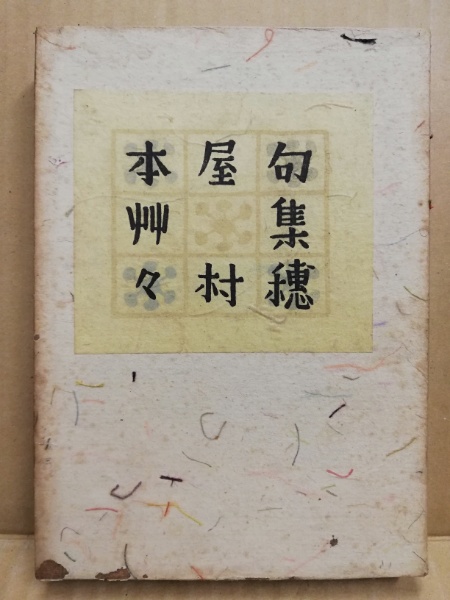 句集穗
屋村
本艸々